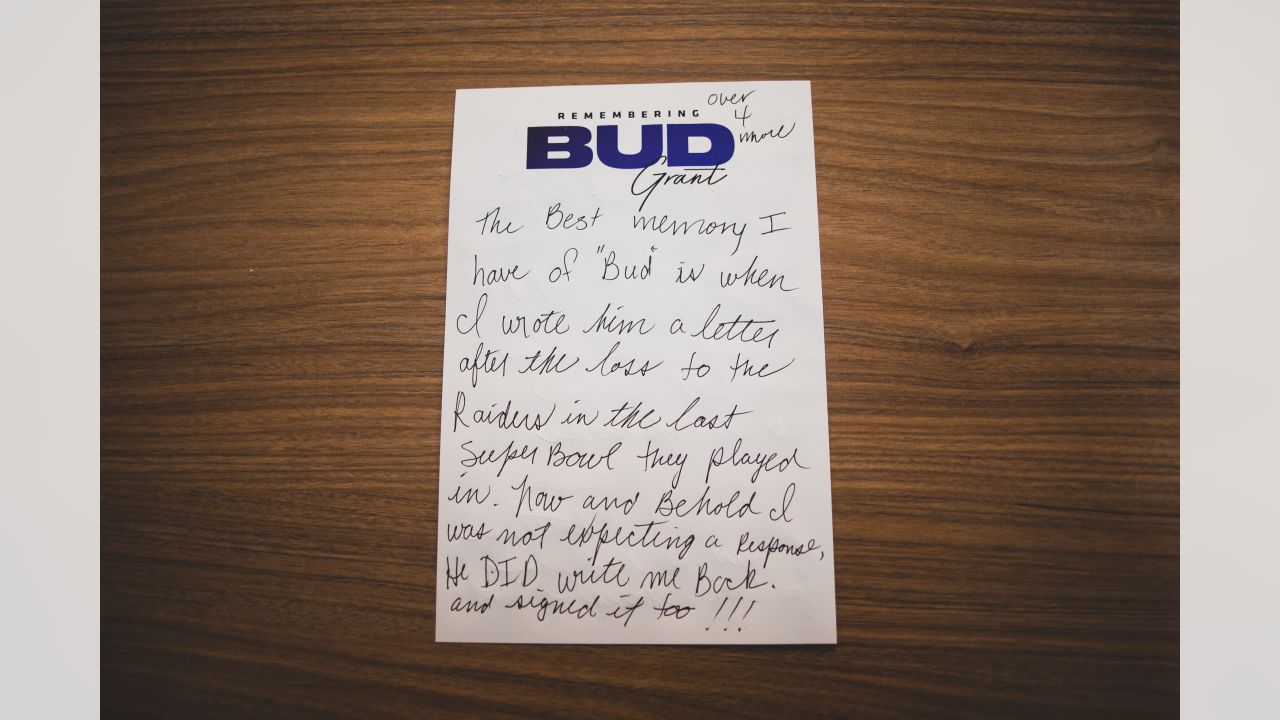 REMEMBERING
BUD
Grant
over
4
more
The Best memory I
have of "Bud" is when
I wrote him a letter
after the loss to the
Raiders in the last
Super Bowl they played
in. Now and Behold I
was not expecting a Response,
He DID write me Back.
and signed it too !!!